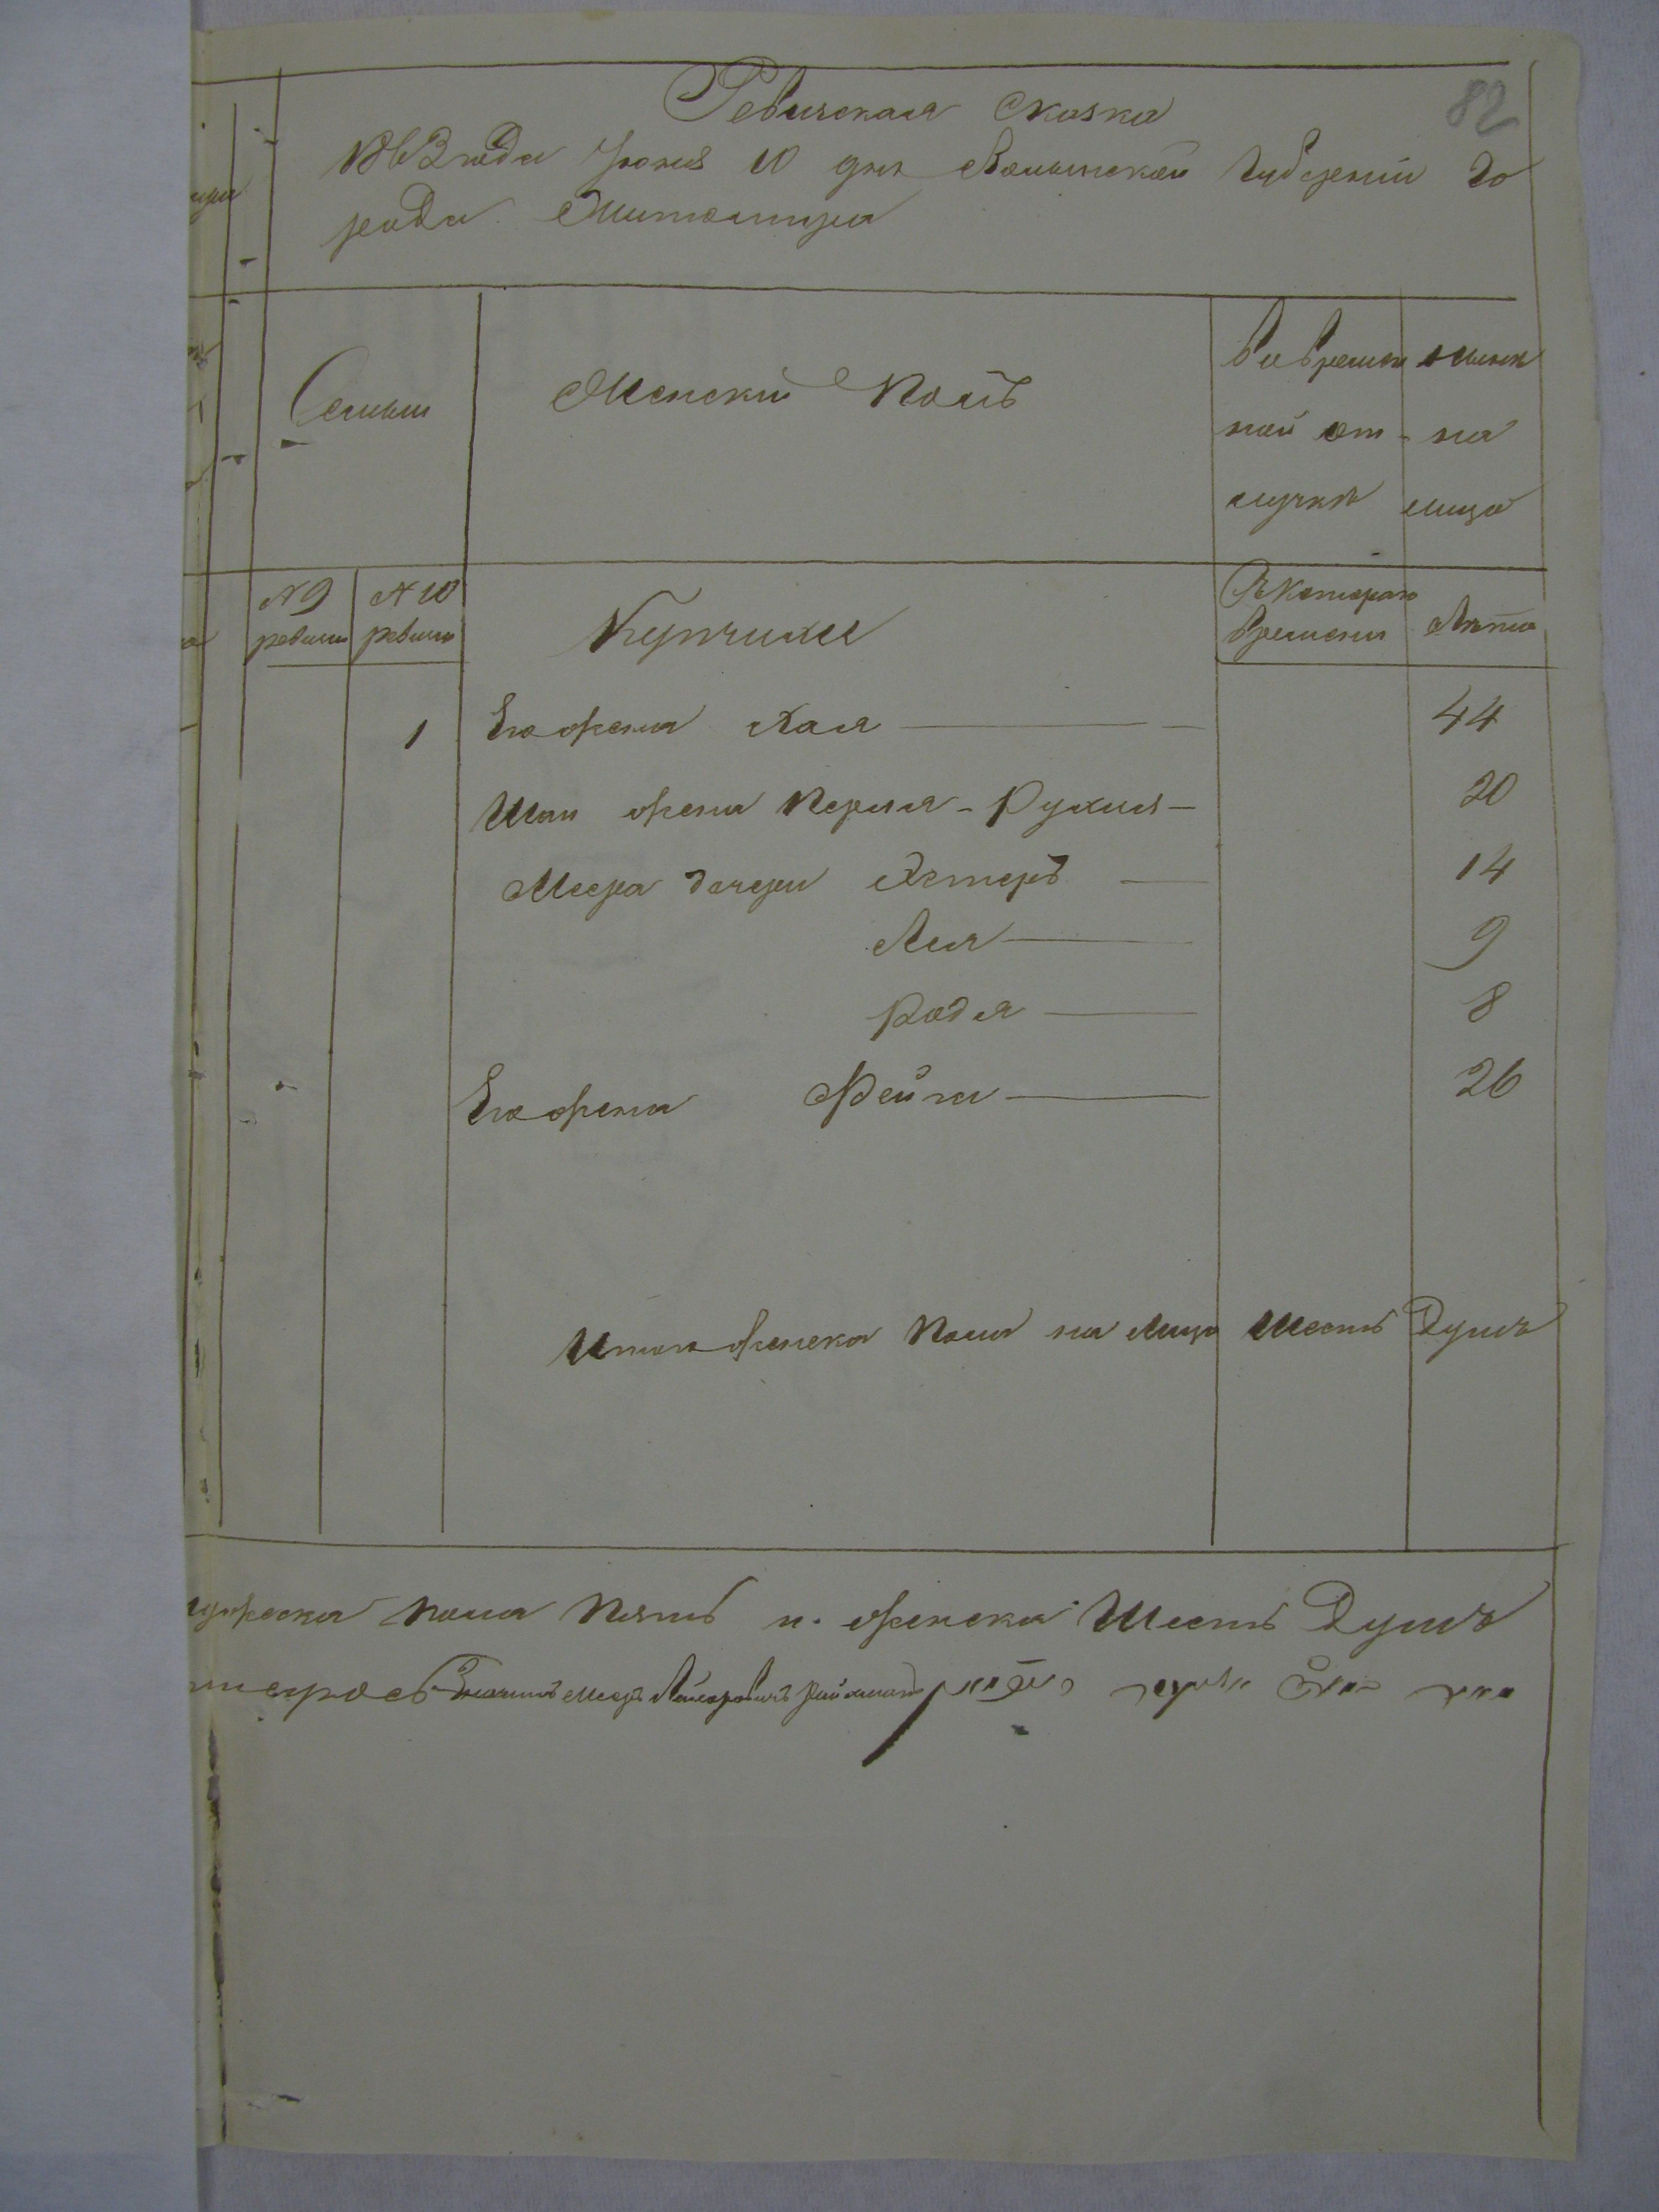 82
Ревизская Сказка
1863 года Іюня 10 дня Волынской Губерніи Го
рода Житомира
Семьи
Женскій Полъ
Во времен
ной от-
лучкѣ
на
лицо
№ 9 ревизіи
№ 10 ревизіи
Купчихи
Съ Котораго
времени
Лѣта
1 Его жена Хая 44
жена Перля-Рухля 20
Меера дочери Эстеръ 14
Лея 9
Родя 8
Его жена Фейга 26
Итого женска Пола на Лицо Шесть Душъ
мужеска пола Пять и женска Шесть Душъ